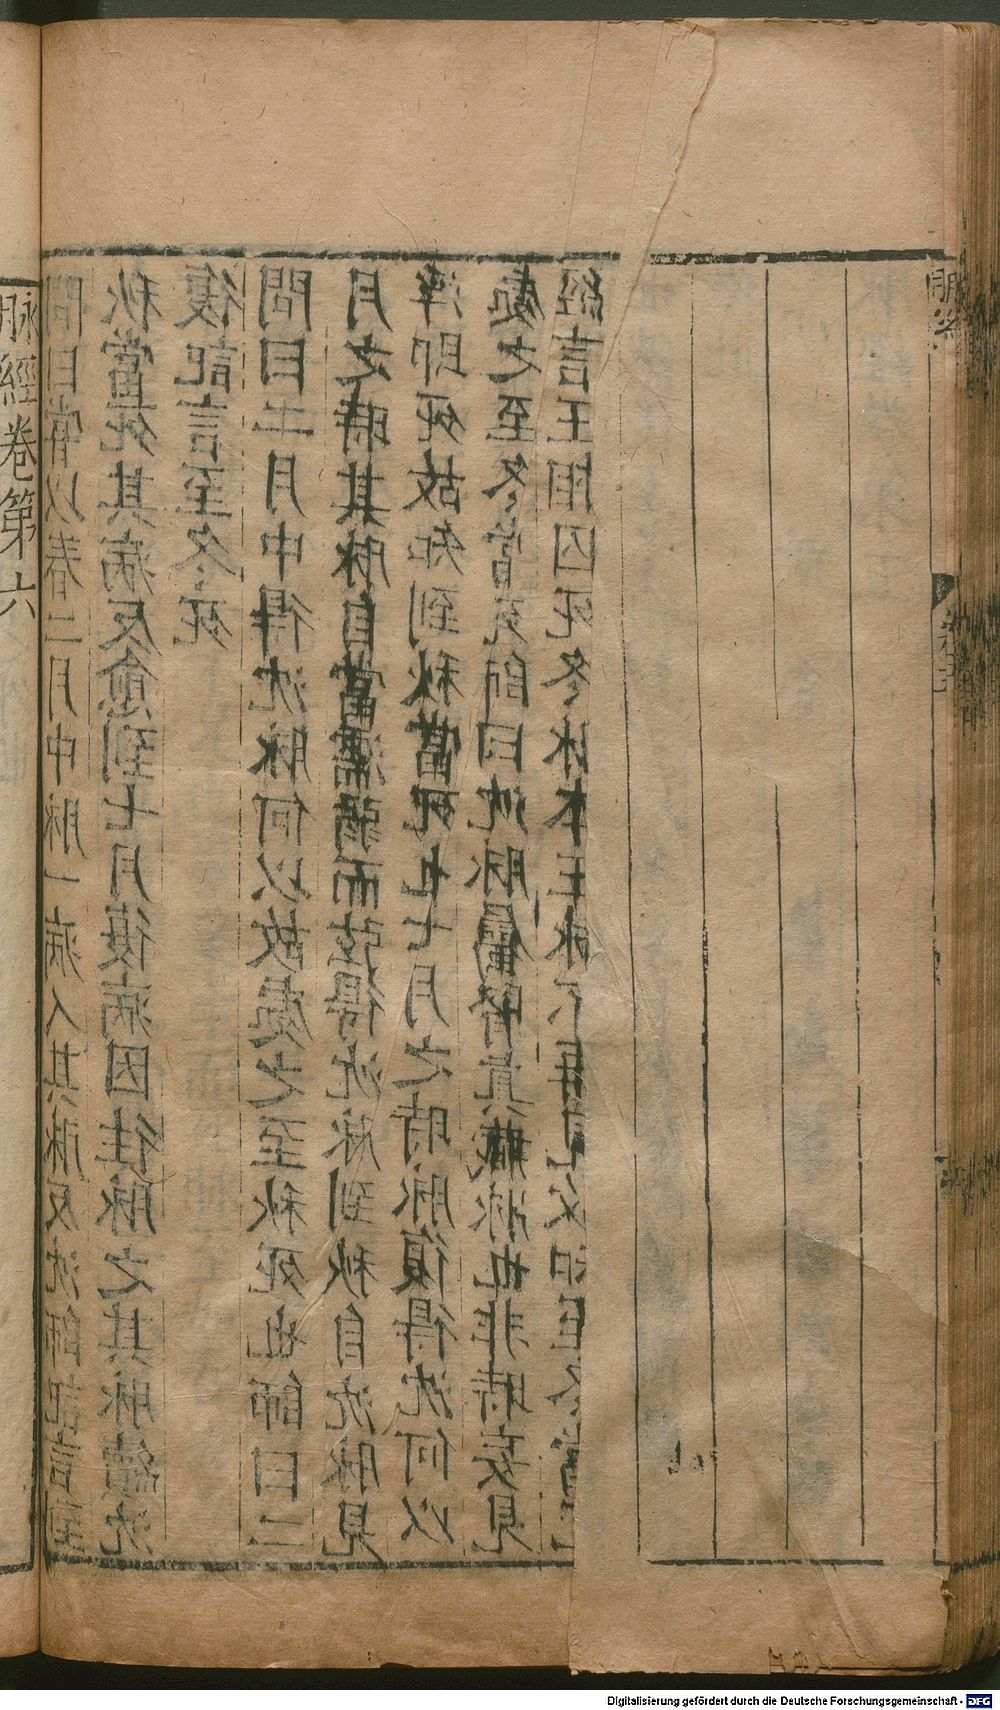 脉經卷第六
問曰常以春二月中脉一病人其脉反沈師記言至
秋當死其病反愈到七月復病因往脉之其脉續沈
復記言至冬死
問曰二月中得沈脉何以故處之至秋死也師曰二
月之時其脉自當濡弱而弦得沈脉到秋自沈脉見
浮即死故知到秋當死也七月之時脉復得沈何以
處之至冬當死師曰沈脉屬腎真藏脉也非時妄見
經言王相囚死冬脉本王脉不再見故知至冬當
Digitalisierung gefördert durch die Deutsche Forschungsgemeinschaft - DFG